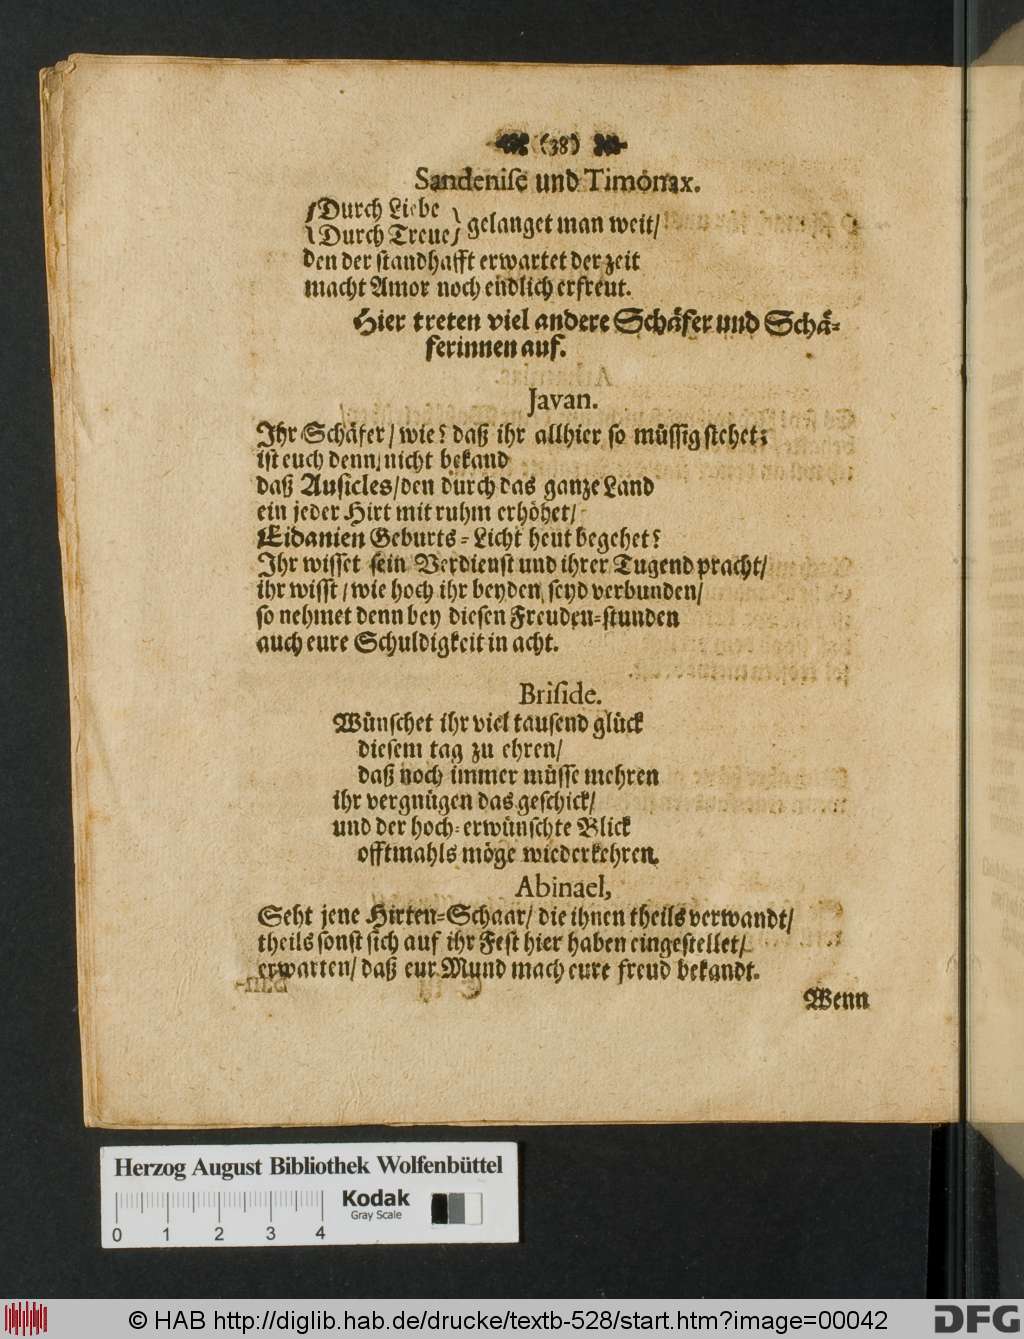 (38)
Sandenise und Timonax.
{Durch Liebe
{Durch Treue} gelanget man weit/
den der standhafft erwartet der zeit
macht Amor noch endlich erfreut.
Hier treten viel andere Schäfer und Schä-
ferinnen auf.
Javan.
Ihr Schäfer/ wie? daß ihr allhier so müssig stehet;
ist euch denn nicht bekand
daß Ausicles/ den durch das ganze Land
ein jeder Hirt mit ruhm erhöhet/
Eidanien Geburts-Licht heut begehet?
Ihr wisset sein Verdienst und ihrer Tugend pracht/
ihr wisst/ wie hoch ihr beyden seyd verbunden/
so nehmet denn bey diesen Freuden-stunden
auch eure Schuldigkeit in acht.
Briside.
Wünschet ihr viel tausend glück
diesem tag zu ehren/
daß noch immer müsse mehren
ihr vergnügen das geschick/
und der hoch-erwünschte Blick
offtmahls möge wiederkehren.
Abinael,
Seht jene Hirten-Schaar/ die ihnen theils verwandt/
theils sonst sich auf ihr Fest hier haben eingestellet/
erwarten/ daß eur Mund mach eure freud bekandt.
Wenn
Herzog August Bibliothek Wolfenbüttel
Kodak
Gray Scale
0 1 2 3 4
© HAB http://diglib.hab.de/drucke/textb-528/start.htm?image=00042
DFG